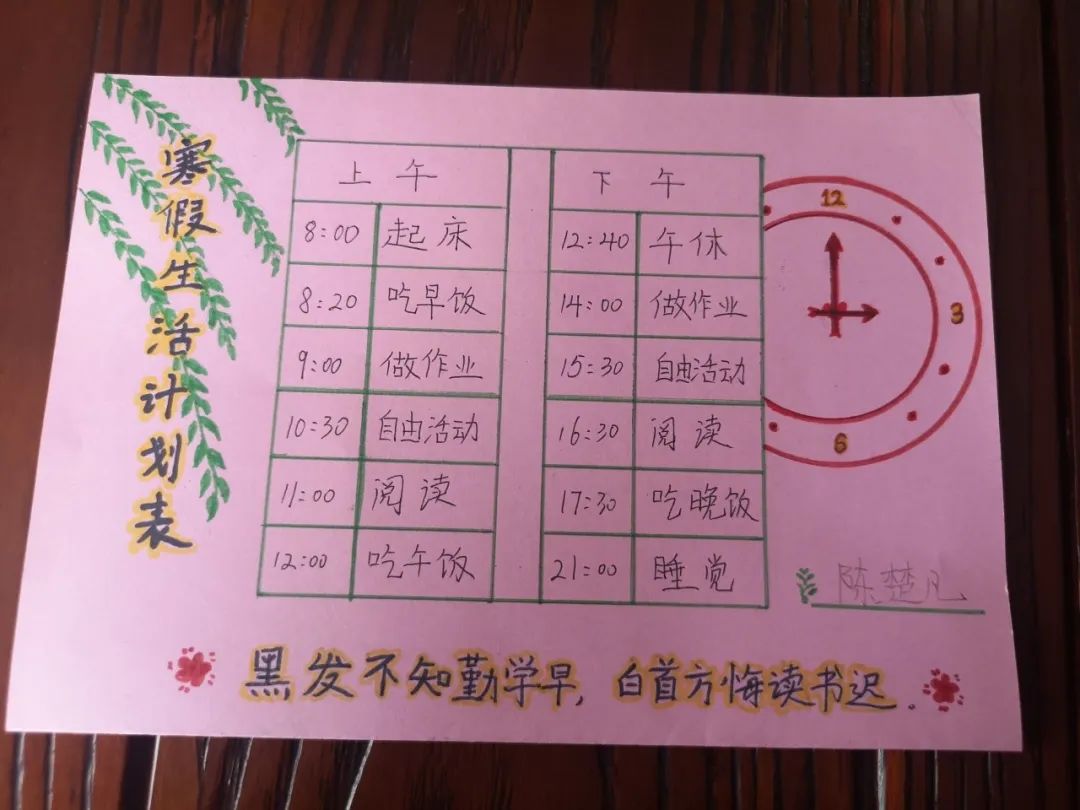 寒假生活计划表
上午
8:00 起床
8:20 吃早饭
9:00 做作业
10:30 自由活动
11:00 阅读
12:00 吃午饭
下午
12:40 午休
14:00 做作业
15:30 自由活动
16:30 阅读
17:30 吃晚饭
21:00 睡觉
12
3
6
陈楚凡
黑发不知勤学早,白首方悔读书迟.